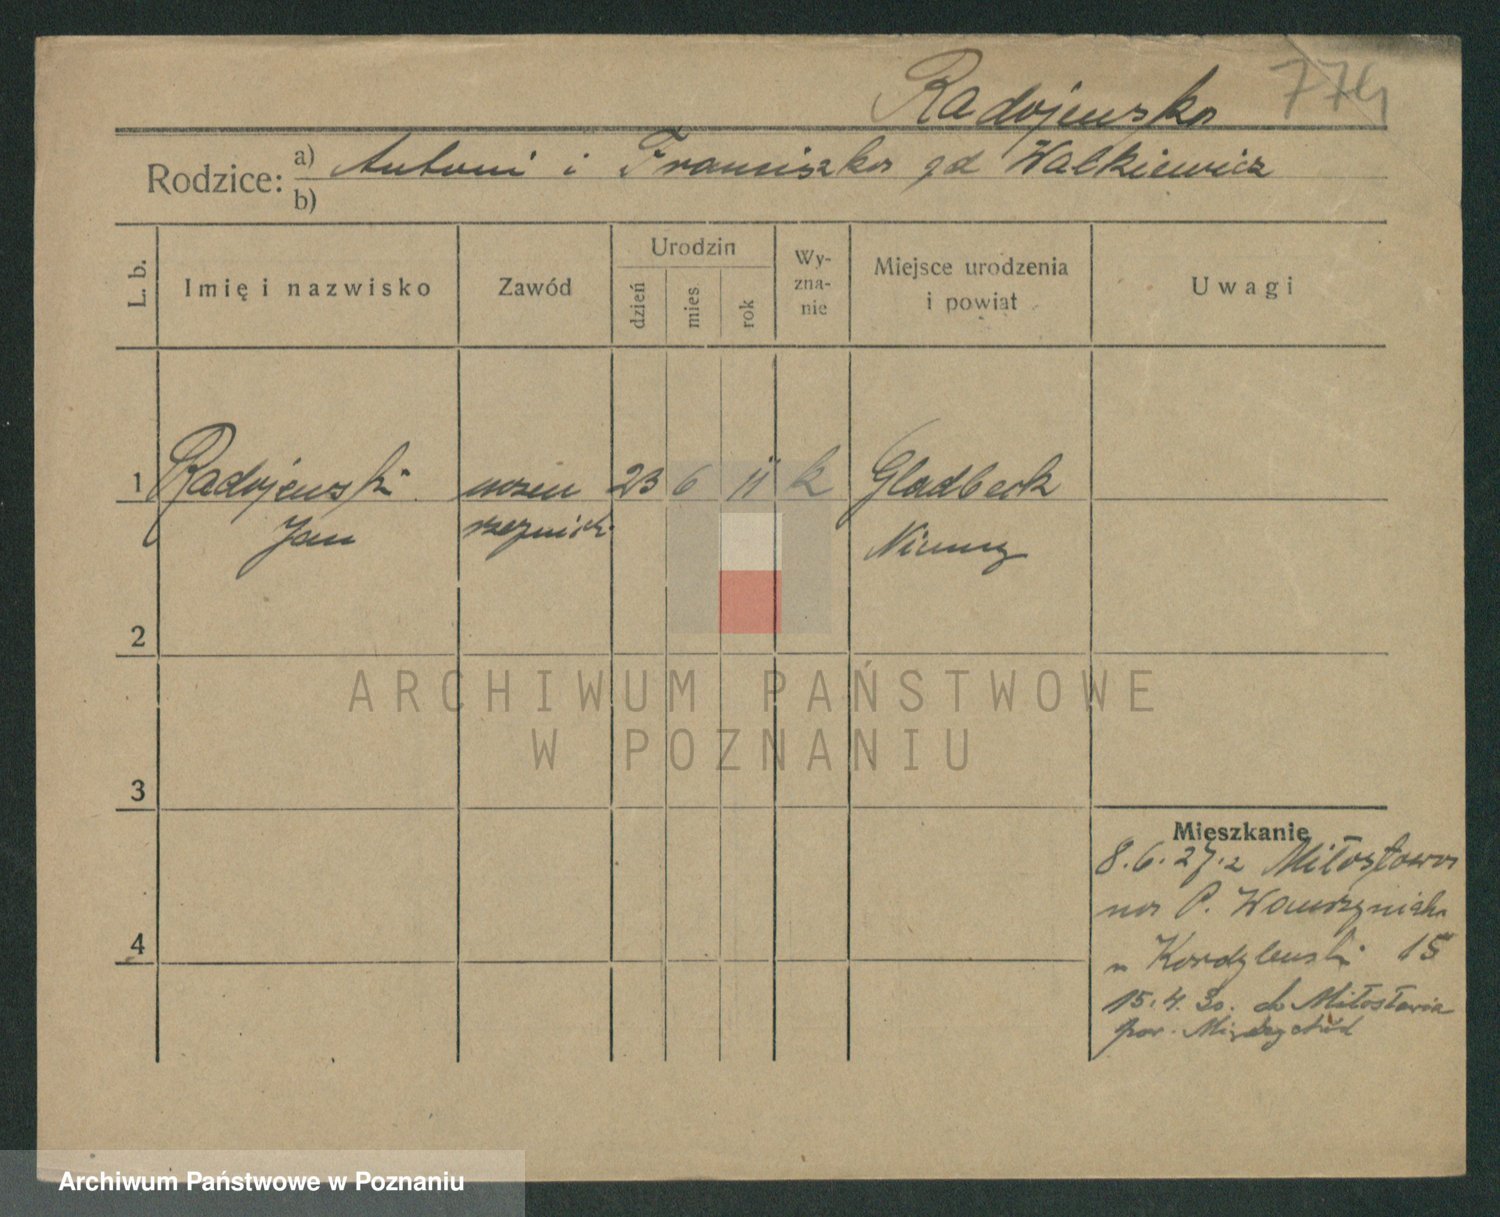 Radojewska 774
Rodzice: a) Antoni i Franciszka zd Walkiewicz
b)
L. b. Imię i nazwisko Zawód Urodzin dzień mies rok Wy-zna-nie Miejsce urodzenia i powiat Uwagi
1 Radojewski uczeń 23 6 11 k Gladbeck
Jan rzeźnick. Niemcy
2
ARCHIWUM PAŃSTWOWE
W POZNANIU
3
Mieszkanie
8.6.27. z Miłostowa
na P. Wawrzyniaka
u Kordylewski 15
4
15.4.30. do Miłostowa
pow. Międzychód
Archiwum Państwowe w Poznaniu